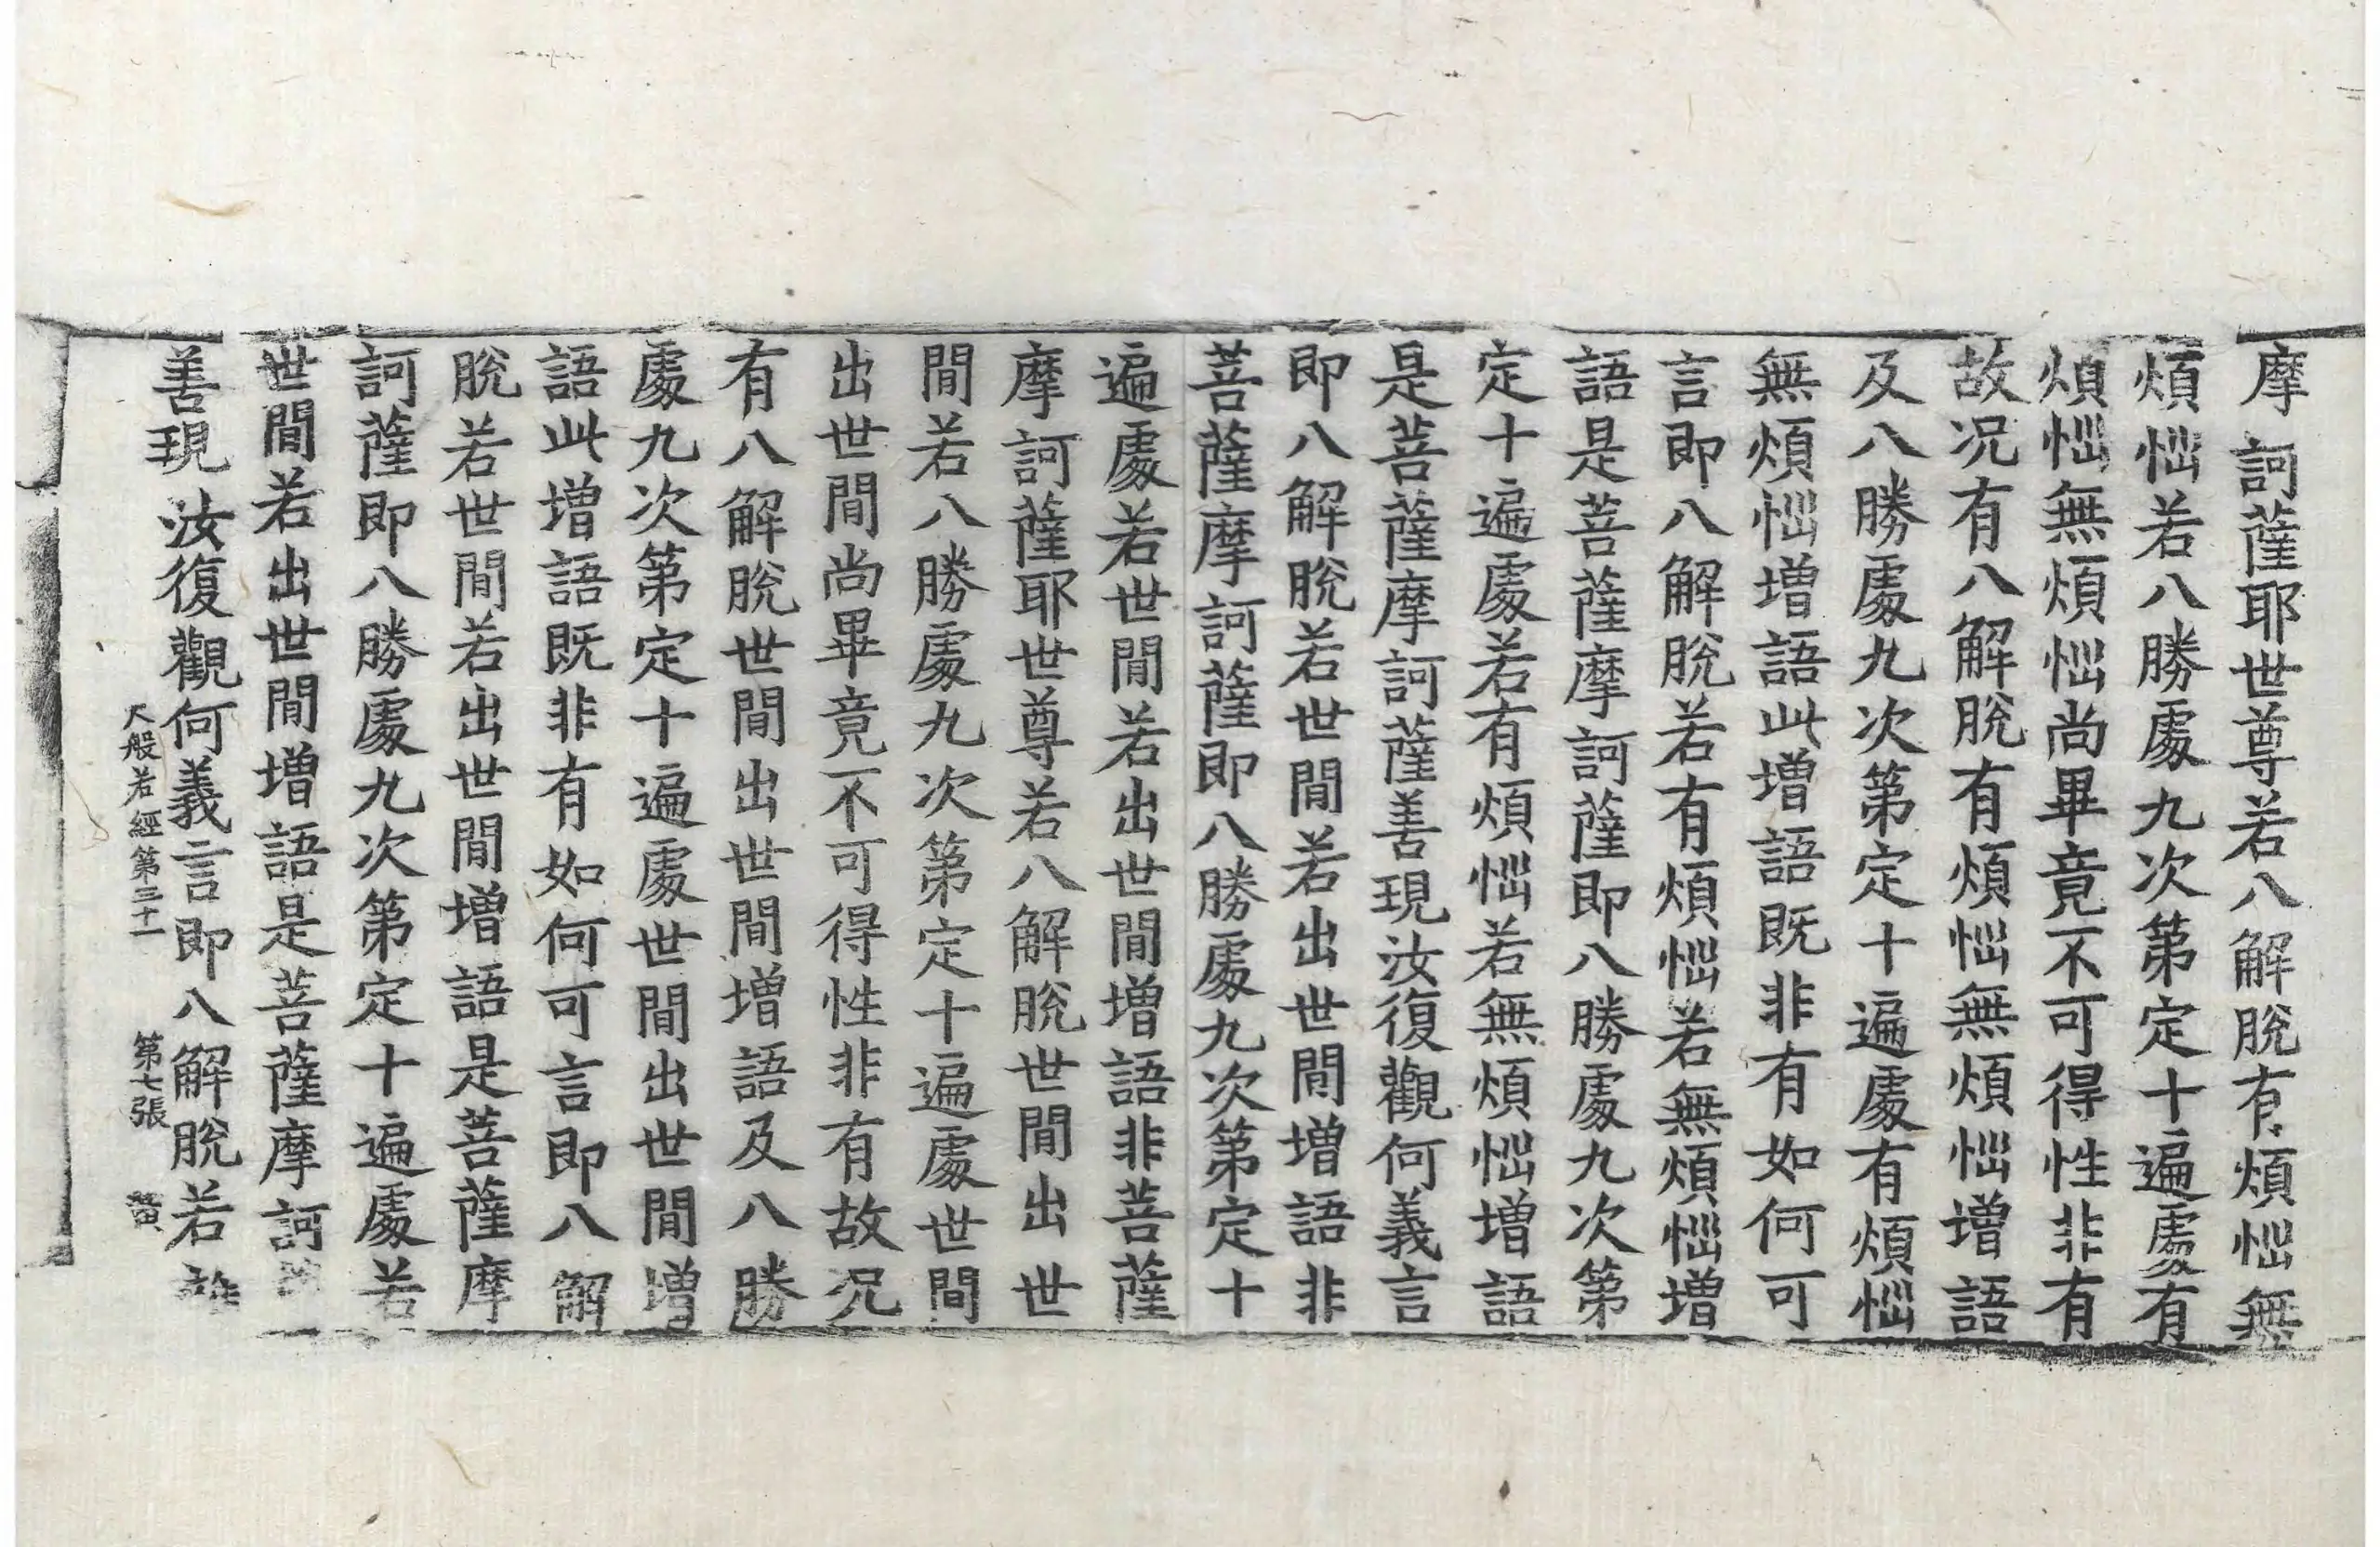 摩訶薩耶世尊若八解脫有煩惱無
煩惱若八勝處九次第定十遍處有
煩惱無煩惱尚畢竟不可得性非有
故况有八解脫有煩惱無煩惱增語
及八勝處九次第定十遍處有煩惱
無煩惱增語此增語既非有如何可
言即八解脫若有煩惱若無煩惱增
語是菩薩摩訶薩即八勝處九次第
定十遍處若有煩惱若無煩惱增語
是菩薩摩訶薩善現汝復觀何義言
即八解脫若世間若出世間增語非
菩薩摩訶薩即八勝處九次第定十
遍處若世間若出世間增語非菩薩
摩訶薩耶世尊若八解脫世間出世
間若八勝處九次第定十遍處世間
出世間尚畢竟不可得性非有故况
有八解脫世間出世間增語及八勝
處九次第定十遍處世間出世間增
語此增語既非有如何可言即八解
脫若世間若出世間增語是菩薩摩
訶薩即八勝處九次第定十遍處若
世間若出世間增語是菩薩摩訶
善現汝復觀何義言即八解脫若
大般若經第三十一 第七張 黃